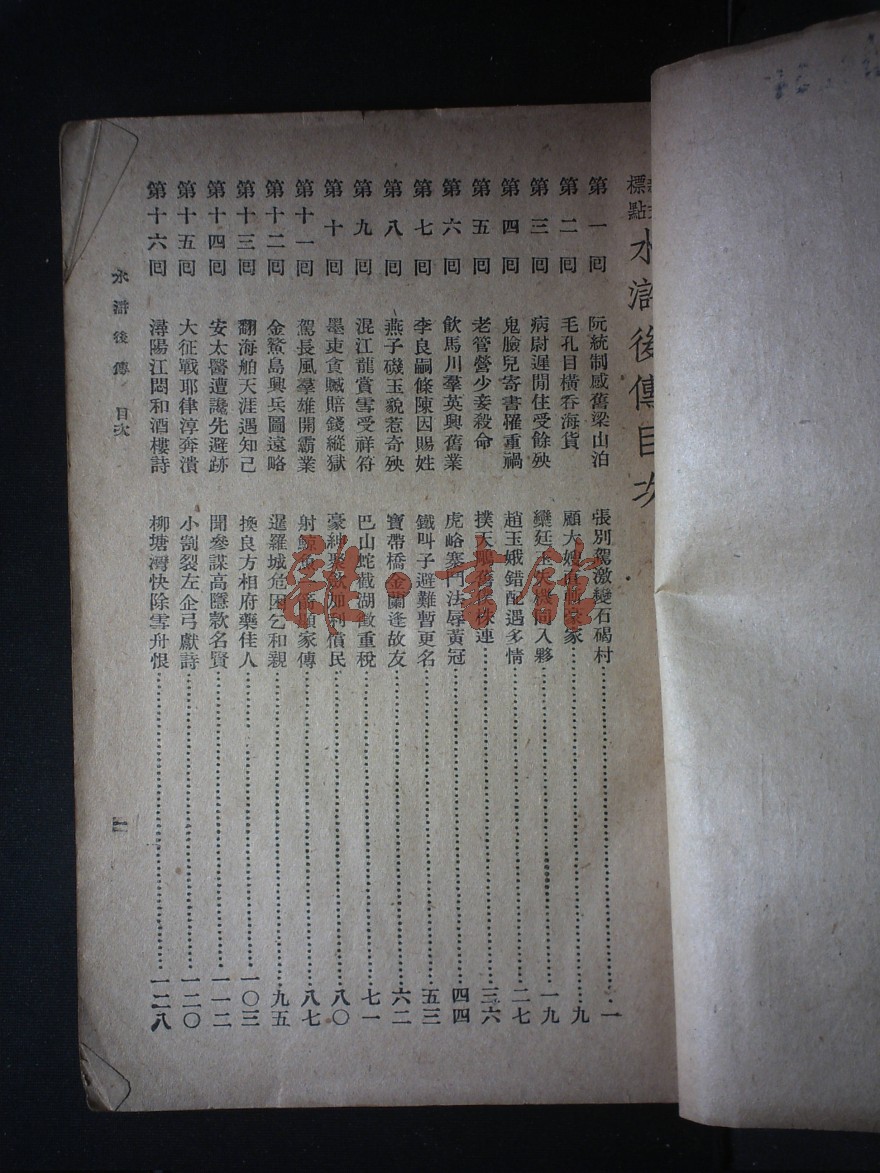 標點
水滸後傳目次
第一回 阮統制感舊梁山泊 張別駕激變石碣村 一
第二回 毛孔目橫吞海貨 顧大嫂 家 九
第三回 病尉遲閒住受餘殃 欒廷玉失機同入夥 一九
第四回 鬼臉兒寄書罹重禍 趙玉娥錯配遇多情 二七
第五回 老管營少妾殺命 撲天鵰舊僕株連 三六
第六回 飲馬川羣英興舊業 虎峪寨鬥法辱黃冠 四四
第七回 李良嗣條陳因賜姓 鐵叫子避難暫更名 五三
第八回 燕子磯玉貌惹奇殃 寶帶橋金蘭逢故友 六二
第九回 混江龍賞雪受祥符 巴山蛇截湖徵重稅 七一
第十回 墨吏貪贓賠錢縱獄 豪紳聚斂加利償民 八〇
第十一回 駕長風羣雄開霸業 射鯨魚 顯家傳 八七
第十二回 金鰲島興兵圖遠略 暹羅城危困乞和親 九五
第十三回 翻海舶天涯遇知己 換良方相府藥佳人 一〇三
第十四回 安太醫遭讒先避跡 聞參謀高隱款名賢 一一二
第十五回 大征戰耶律淳奔潰 小割裂左企弓獻詩 一二〇
第十六回 潯陽江悶和酒樓詩 柳塘灣快除雪舟恨 一二八
水滸後傳 目次
一
雜·書館